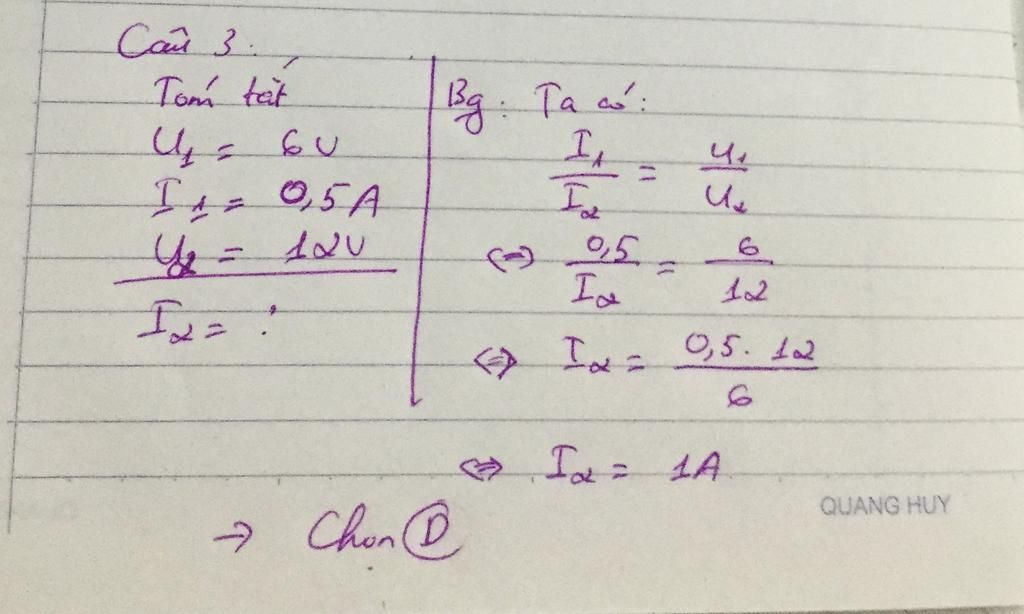 Câu 3.
Tóm tắt
U₁ = 6V
I₁ = 0,5A
U₂ = 12V
I₂ = ?
Bg: Ta có:
I₁/I₂ = U₁/U₂
⇔ 0,5/I₂ = 6/12
⇔ I₂ = 0,5.12/6
⇔ I₂ = 1A
→ Chọn D
QUANG HUY